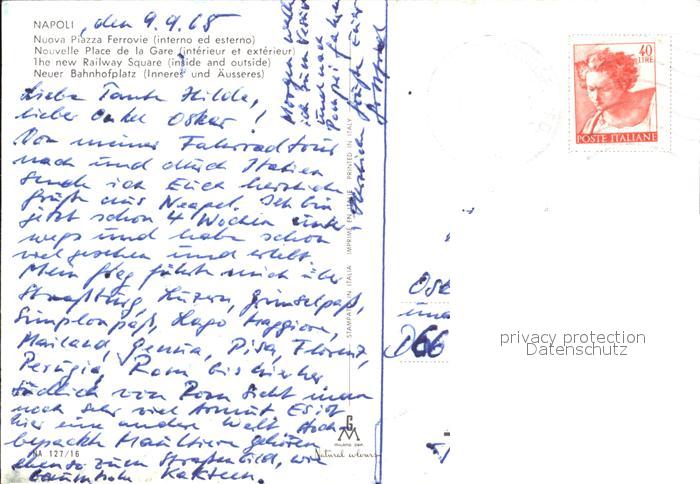 NAPOLI, den 9.9.65
Nuova Piazza Ferrovie (interno ed esterno)
Nouvelle Place de la Gare (intérieur et extérieur)
The new Railway Square (inside and outside)
Neuer Bahnhofplatz (Inneres und Äusseres)
Liebe Tante Hilde,
lieber Onkel Oskar!
Von meiner Fahrradtour
nach und durch Italien
sende ich Euch herzliche
Grüße aus Neapel. Ich bin
jetzt schon 4 Wochen unter
wegs und habe schon
viel gesehen und erlebt.
Mein Weg führte mich über
Straßburg, Luzern, Grimselpaß,
Simplonpaß, Lago Maggiore,
Mailand, Genua, Pisa, Florenz,
Perugia, Rom bis hierher
Südlich von Rom sieht man
noch sehr viel Armut. Es ist
hier eine andere Welt. Hoch-
bepackte Maultiere gehören
ebenso zum Straßenbild, wie
baumhohe Kakteen.
Morgen will
ich zum Vesuv
und nach
Pompei fahren
Herzlich grüßt Euer
STAMPATO IN ITALIA IMPRIMÉ EN ITALIE PRINTED IN ITALY
NA 127/16
G
M
MILANO
Natural colours
40
LIRE
POSTE ITALIANE
Osk
und
D66
privacy protection
Datenschutz